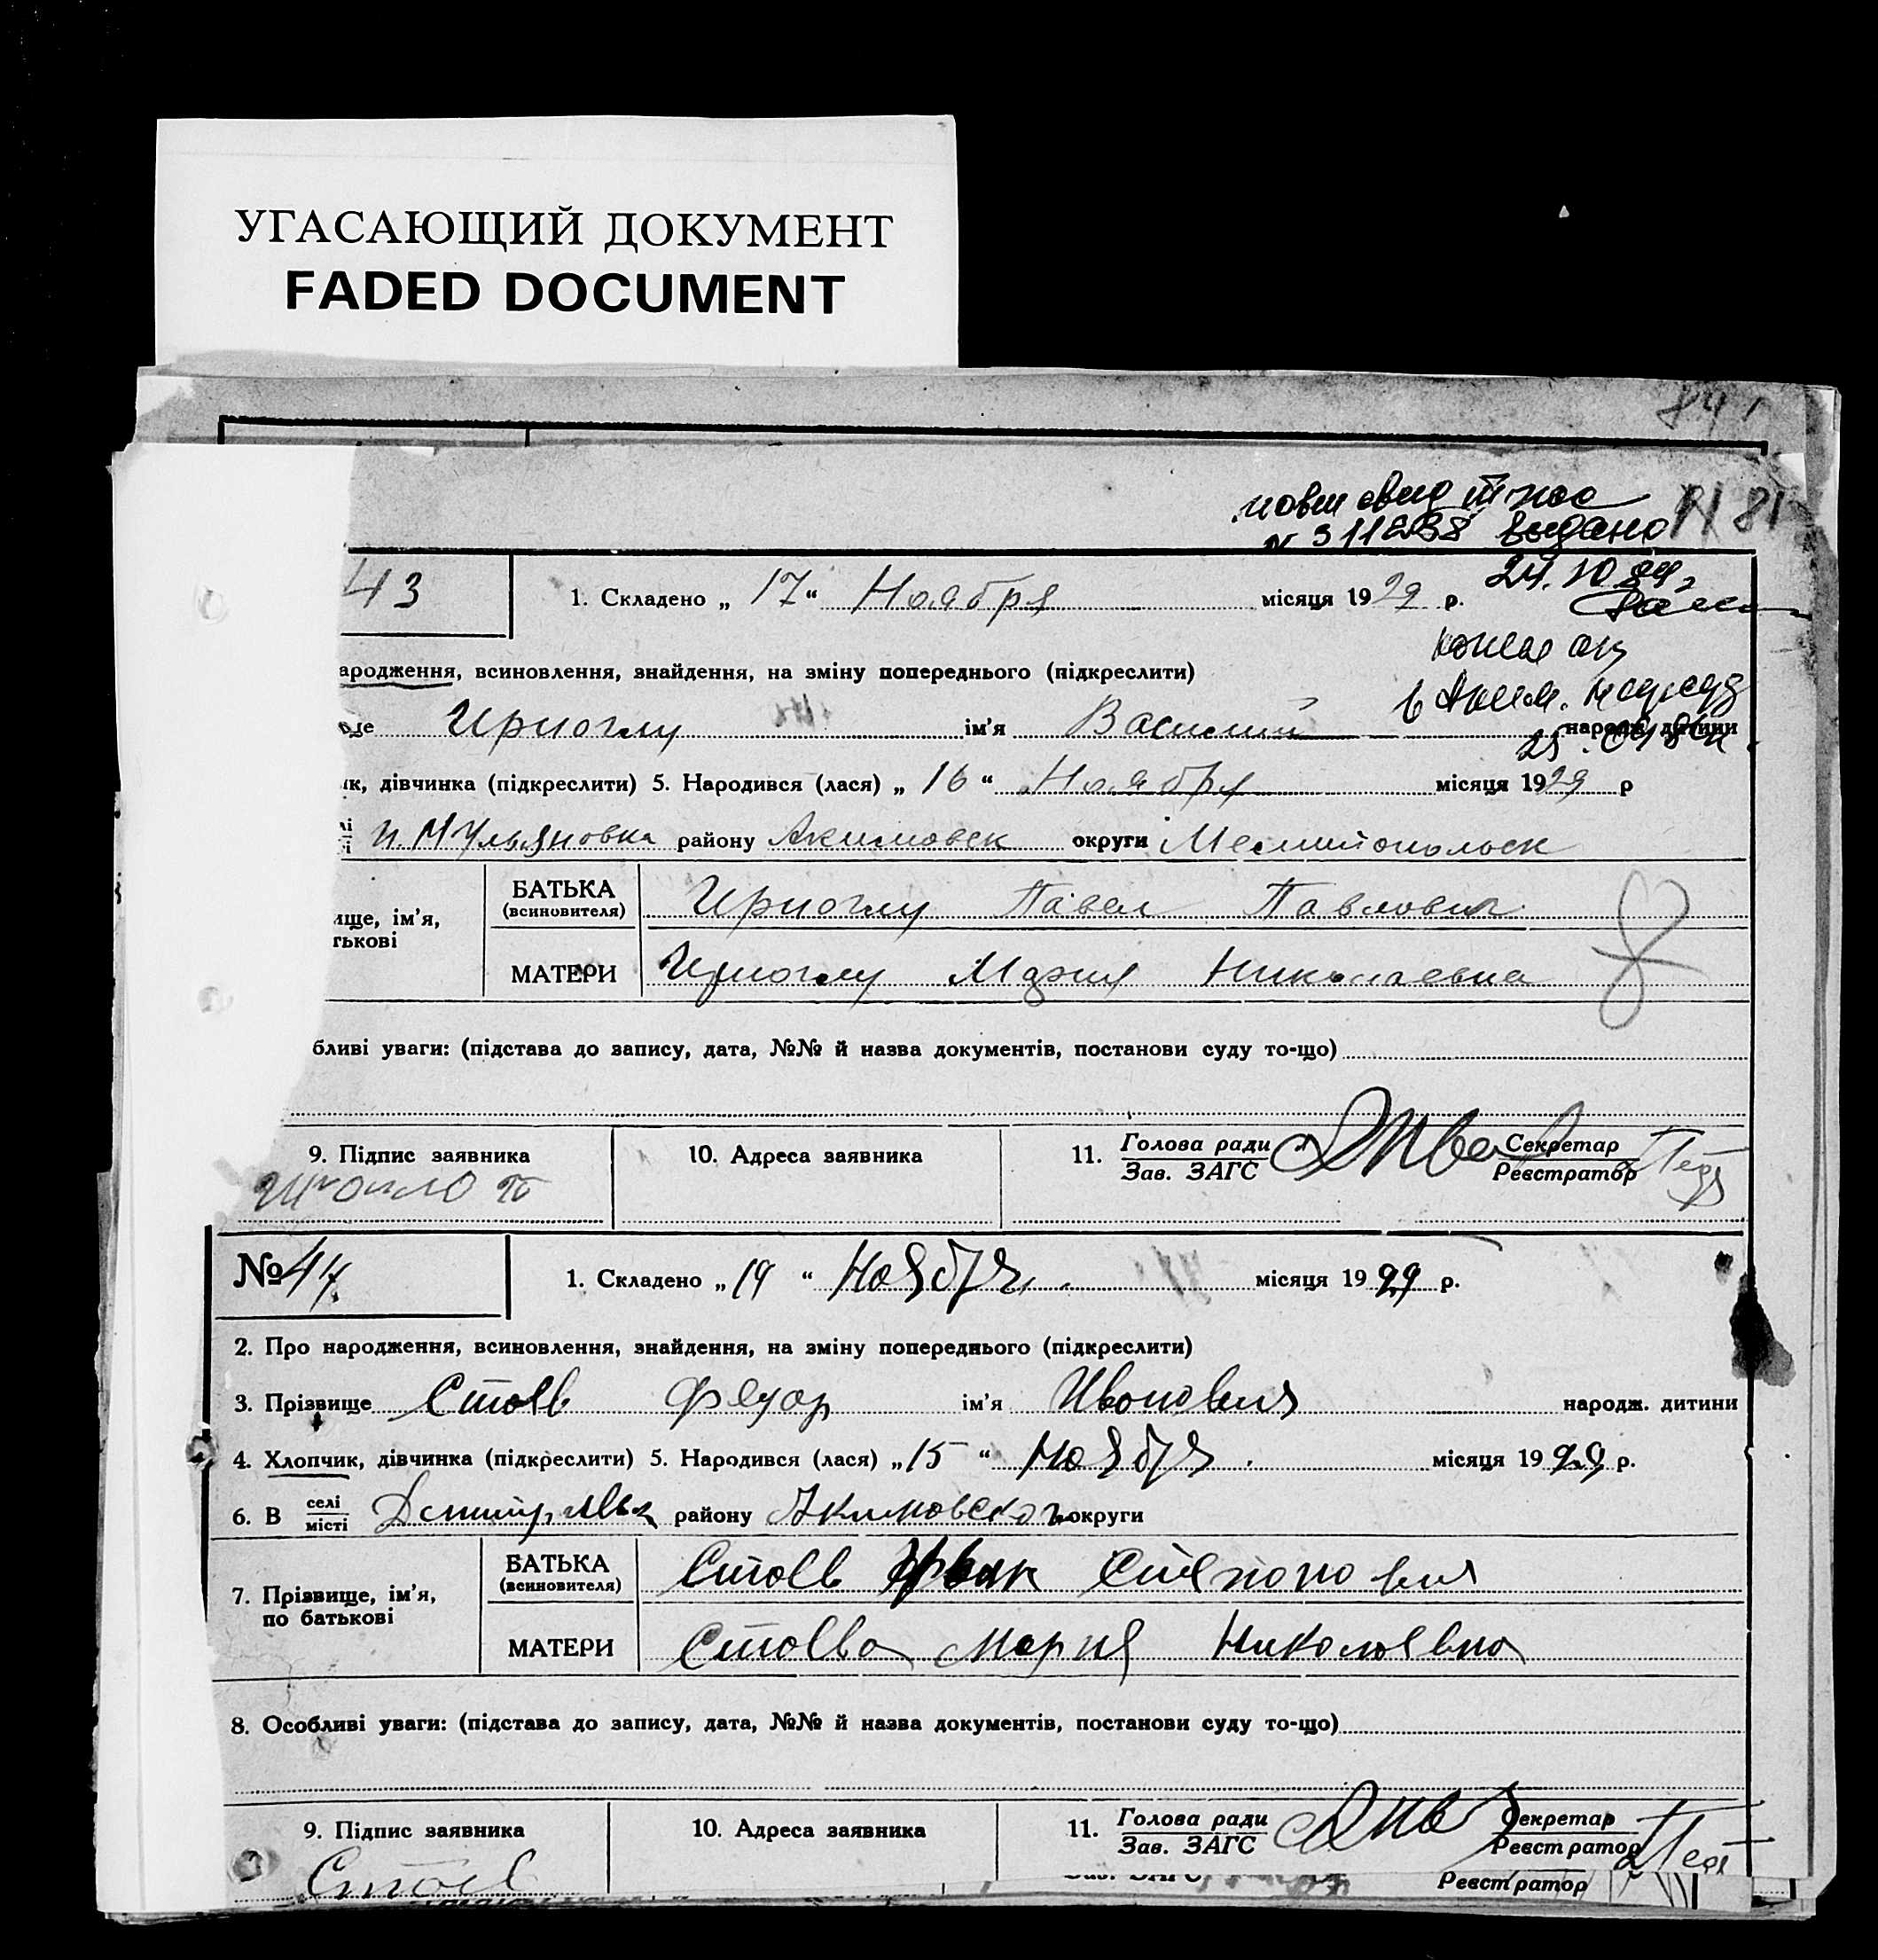 УГАСАЮЩИЙ ДОКУМЕНТ
FADED DOCUMENT
841
N 311238 выдано
24.10.84г
43
1. Складено „ 17 “ Ноября місяця 1929 р.
ародження, всиновлення, знайдення, на зміну попереднього (підкреслити)
ще Ириоглу ім’я Василий народж. дитини
ик, дівчинка (підкреслити) 5. Народився (лася) „ 16 “ Ноября місяця 1929 р
н. М Ульяновка району Акимовск округи Мелитопольск
ище, ім’я,
тькові
БАТЬКА
(всиновителя)
Ириоглу Павел Павлович
МАТЕРИ
Ириоглу Мария Николаевна
бливі уваги: (підстава до запису, дата, №№ й назва документів, постанови суду то-що)
9. Підпис заявника
10. Адреса заявника
11. Голова ради
Зав. ЗАГС
Секретар
Реєстратор
№ 44.
1. Складено „ 19 “ Ноября місяця 1929 р.
2. Про народження, всиновлення, знайдення, на зміну попереднього (підкреслити)
3. Прізвище Стоев Федор ім’я Иванович народж. дитини
4. Хлопчик, дівчинка (підкреслити) 5. Народився (лася) „ 15 “ Ноября місяця 1929 р.
6. В селі
місті
району Акимовского округи
7. Прізвище, ім’я,
по батькові
БАТЬКА
(всиновителя)
Стоев Иван Степанович
МАТЕРИ
Стоева Мария Николаевна
8. Особливі уваги: (підстава до запису, дата, №№ й назва документів, постанови суду то-що)
9. Підпис заявника
Стоев
10. Адреса заявника
11. Голова ради
Зав. ЗАГС
Секретар
Реєстратор
Реєстратор